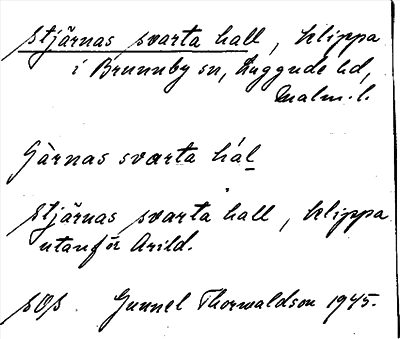 Stjärnas svarta hall, klippa
i Brunnby sn, Luggude hd,
Malm. l.
Gärnas svarta hál
Stjärnas svarta hall, klippa
utanför Arild.
sOs Gunnel Thorwaldson 1945.